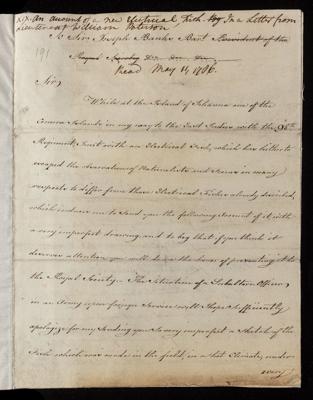 XIX. An account of a new Electrical Fish. In a Letter from
Lieutenant William Paterson
to Sir Joseph Banks Bart President of the
Royal Society
191
Read May 11, 1786.
Sir,
While at the Island of Johanna one of the
Comora Islands in my way to the East Indies with the 98th
Regiment, I met with an Electrical Fish, which has hitherto
escaped the observation of Naturalists and seems in many
respects to differ from those Electrical Fishes already described,
which induces me to send you the following account of it with
a very imperfect drawing, and to beg that if you think it
deserves attention you will do me the honor of presenting it to
the Royal Society. The situation of a Subaltern Officer,
in an Army upon foreign Service will I hope sufficiently
apologize for my sending you so very imperfect a Sketch of the
Fish which was made in the field, in a hot Climate, under
every